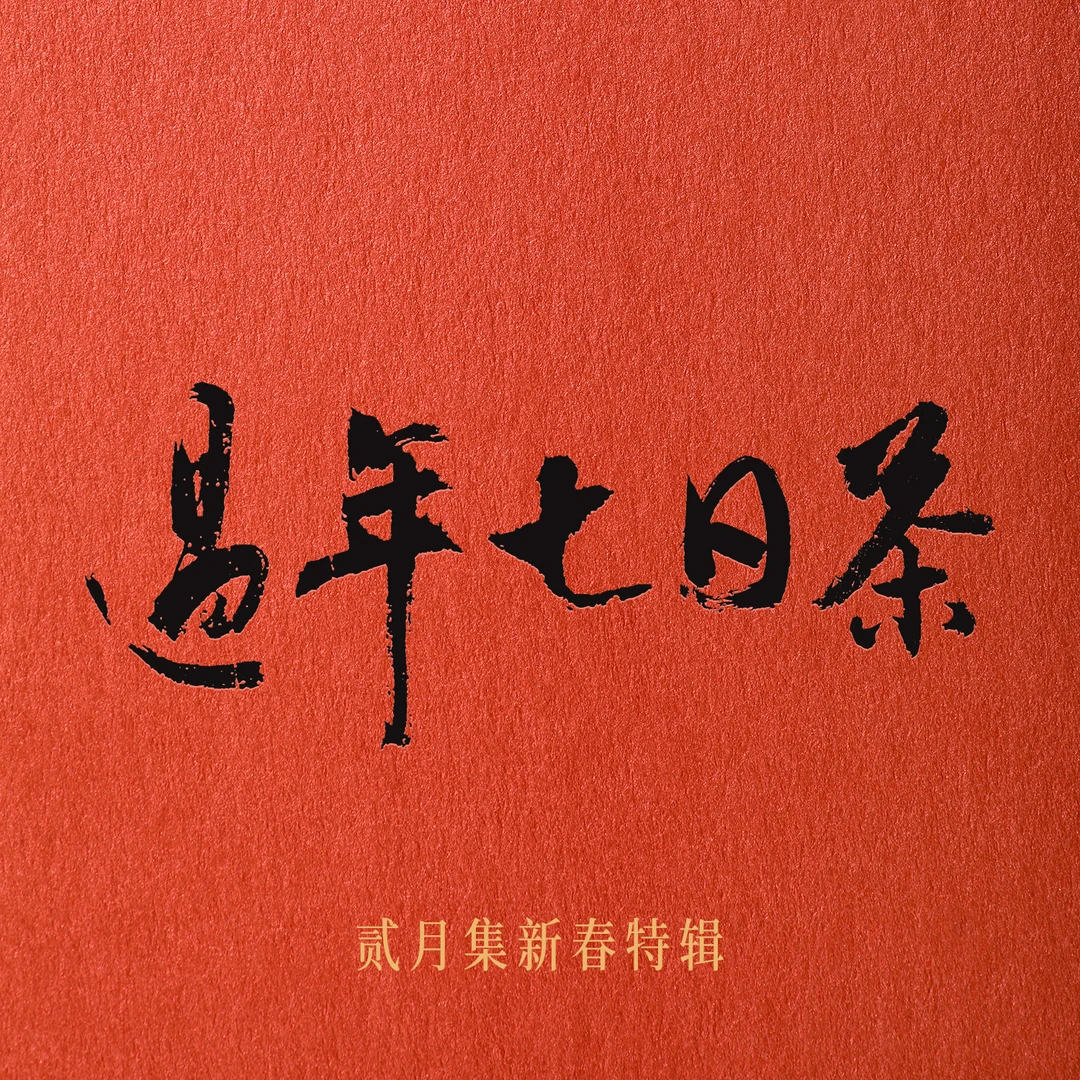 過年七日茶
贰月集新春特辑